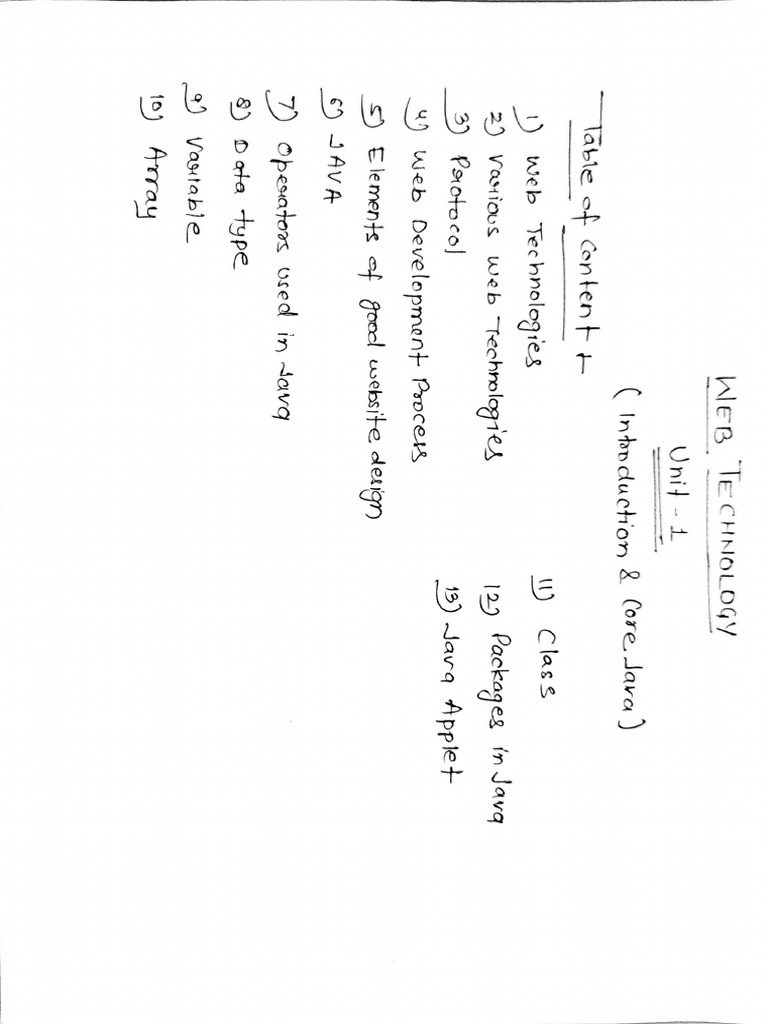 WEB TECHNOLOGY
Unit - 1
( Introduction & Core Java )
Table of Content :-
1) Web Technologies
2) Various Web Technologies
3) Protocol
4) Web Development Process
5) Elements of good website design
6) JAVA
7) Operators used in Java
8) Data type
9) Variable
10) Array
11) Class
12) Packages in Java
13) Java Applet